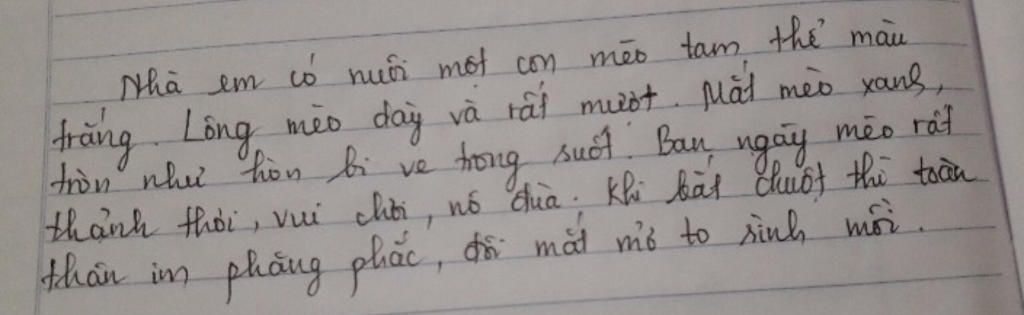 Nhà em có nuôi một con mèo tam thể màu
trắng. Lông mèo dày và rất mượt. Mắt mèo xanh,
tròn như hòn bi ve trong suốt. Ban ngày mèo rất
thảnh thơi, vui chơi, nô đùa. Khi bắt chuột thì toàn
thân im phăng phắc, đôi mắt mở to rình mồi.